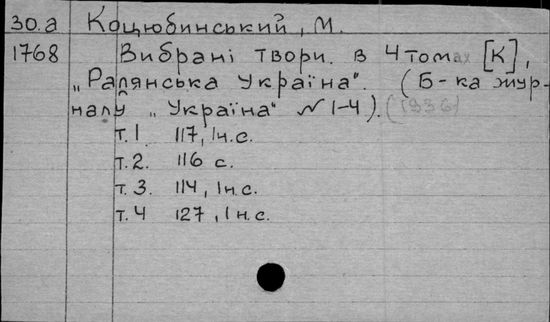 30.а Коцюбинський, М.
1768 Вибрані твори. в 4 томах [К],
„Радянська Україна". (Б-ка жур-
налу „Україна" №1-4). (1936)
т.1. 117, 1н.с.
т.2. 116 с.
т.3. 114, 1н.с.
т.4 127, 1н.с.